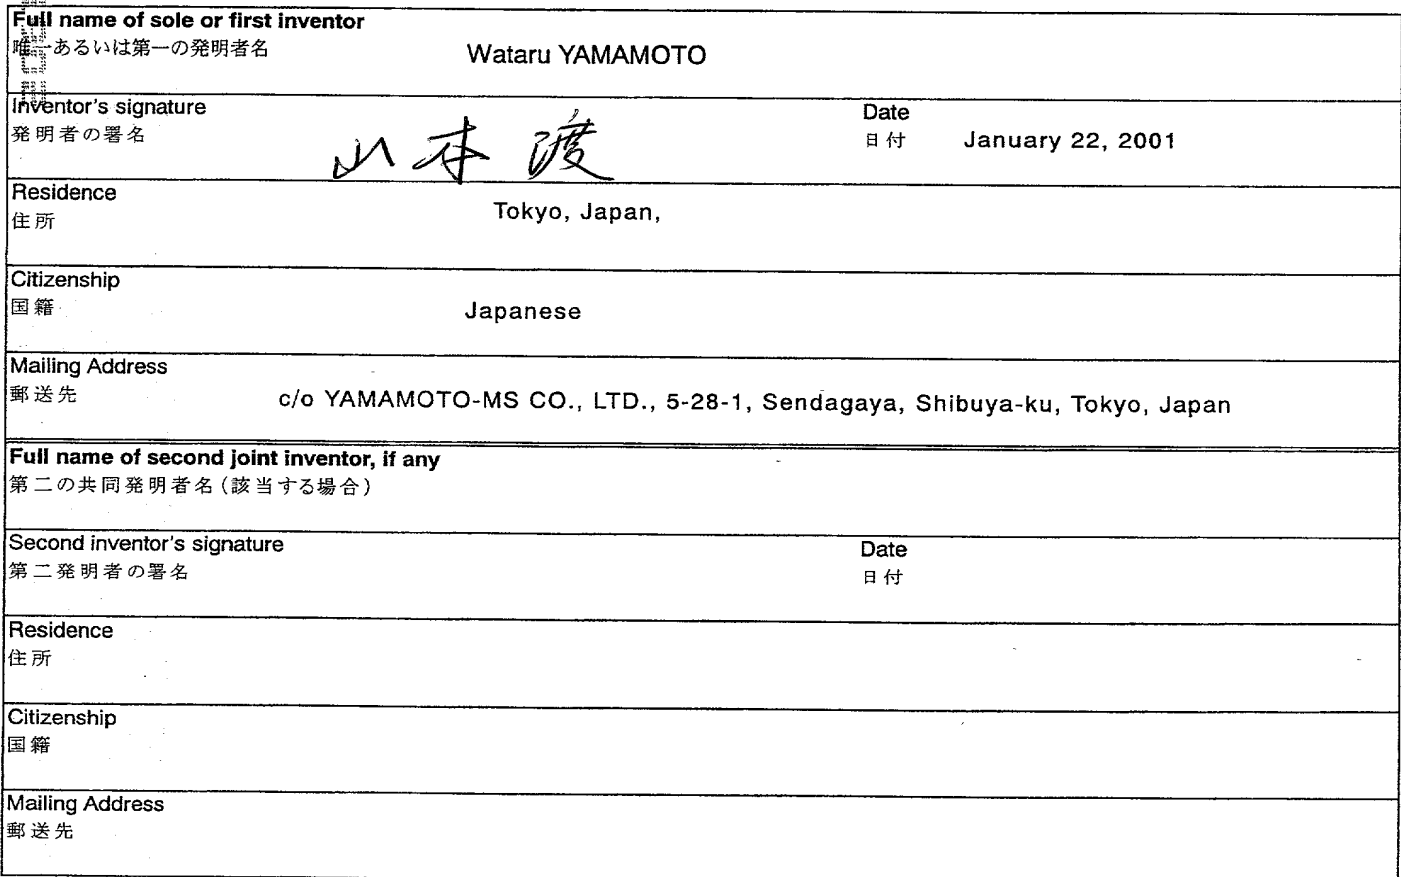 Full name of sole or first inventor
唯一あるいは第一の発明者名
Wataru YAMAMOTO
Inventor's signature
発明者の署名
山本 渡
Date
日付
January 22, 2001
Residence
住所
Tokyo, Japan,
Citizenship
国籍
Japanese
Mailing Address
郵送先
c/o YAMAMOTO-MS CO., LTD., 5-28-1, Sendagaya, Shibuya-ku, Tokyo, Japan
Full name of second joint inventor, if any
第二の共同発明者名(該当する場合)
Second inventor's signature
第二発明者の署名
Date
日付
Residence
住所
Citizenship
国籍
Mailing Address
郵送先